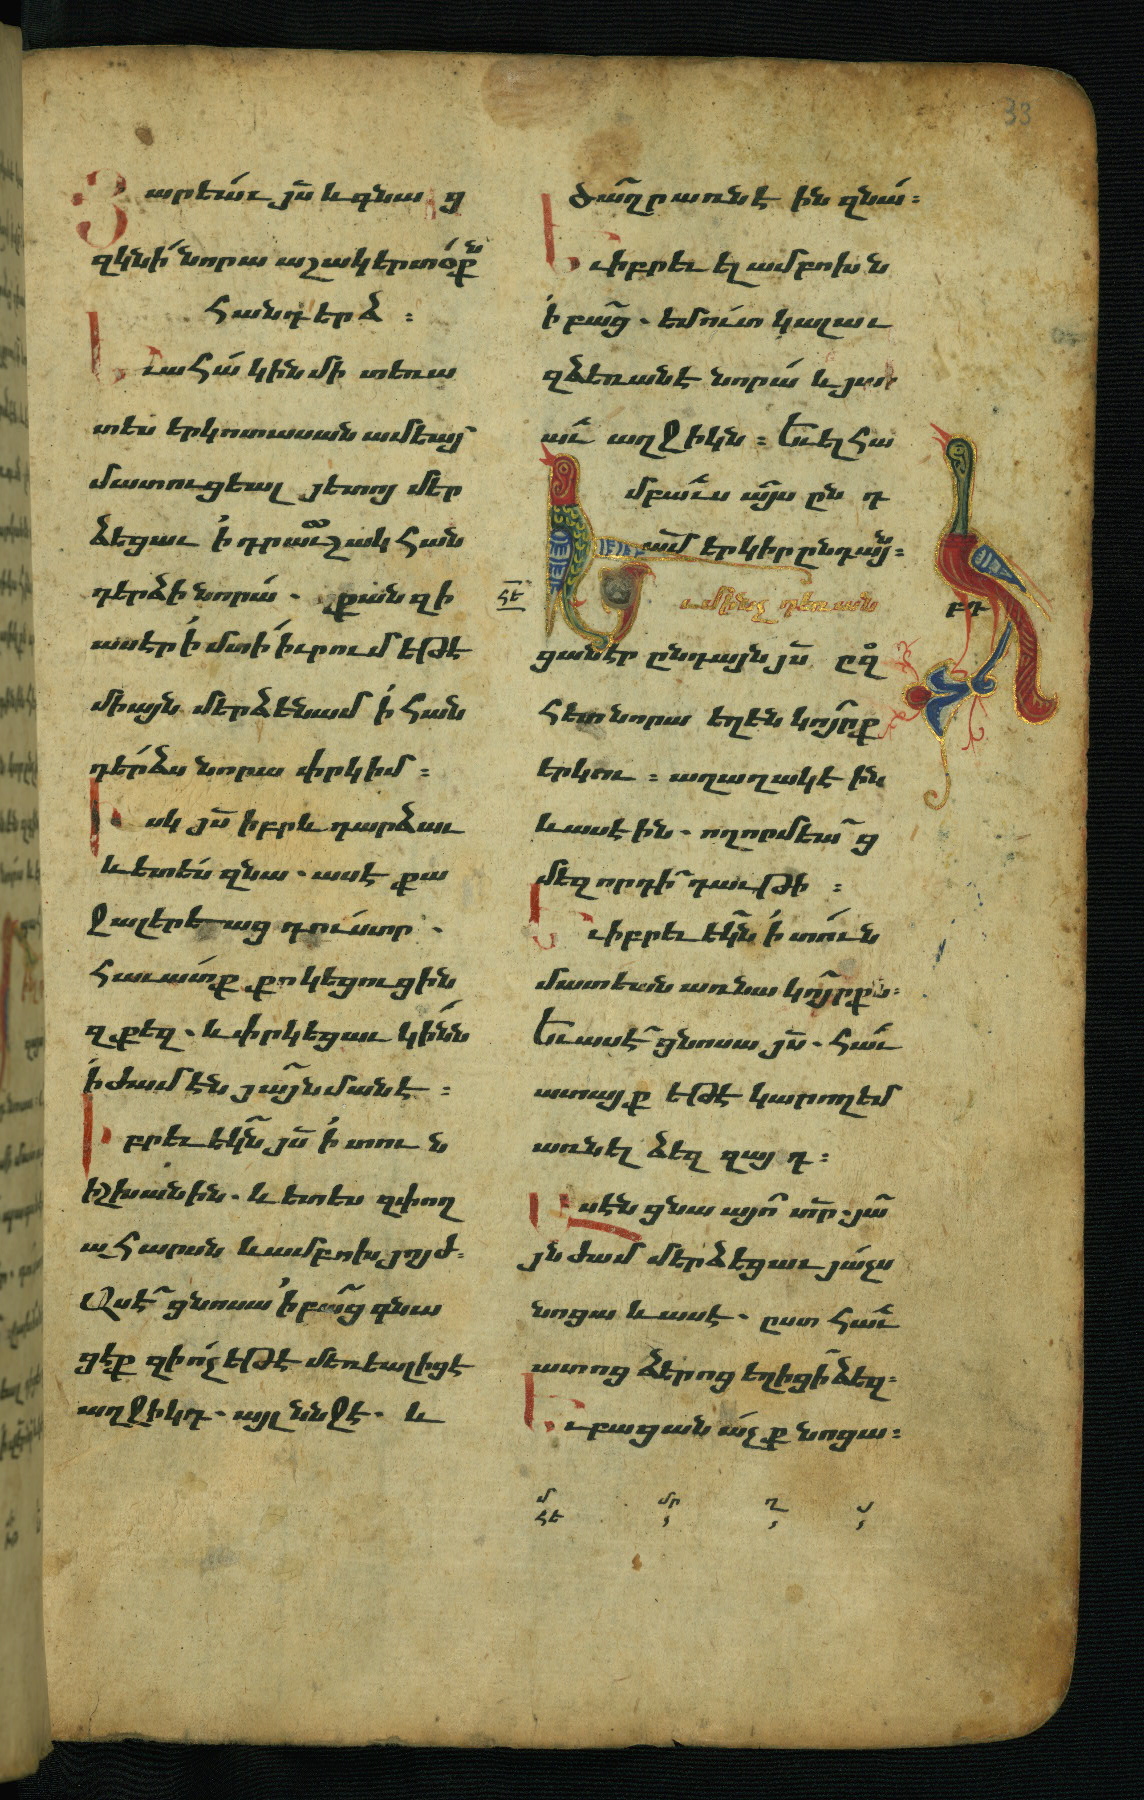 33
Յարեաւ յս̄ և գնաց
զկնի նորա աշակերտօքն
հանդերձ ։
Եւ ահա կին մի տեռա
տես երկոտասան ամեայ
մատուցեալ յետոյ մեր
ձեցաւ ի դրաւշակ հան
դերձի նորա . քանզի
ասէր ի մտի իւրում եթէ
միայն մերձենամ ի հան
դերձս նորա փրկիմ ։
Իսկ յս̄ իբրև դարձաւ
և ետես զնա . ասէ քա
ջալերեաց դուստր .
հաւատք քո կեցուցին
զքեզ . և փրկեցաւ կինն
ի ժամէն յայնմանէ ։
Իբրեւ եկն̄ յս̄ ի տուն
իշխանին . և ետես զփող
ահարսն և ամբոխ յոյժ ։
Ասէ ցնոսա ի բաց գնա
ցէք զի ոչ եթէ մեռեալ իցէ
աղջիկդ . այլ ննջէ . և
ծաղր առնէին զնա ։
Եւ իբրեւ ել ամբոխն
ի բաց . եմուտ կալաւ
զձեռանէ նորա և յար
եաւ աղջիկն ։ Եւ ել հա
մբաւս այս ընդ
ամ երկիրն ընդայն ։
հե
Եւ մինչ դեռ ան
բդ
ցանէր ընդ այն յս̄ ըզ
հետ նորա եղեն կոյրք
երկու ։ աղաղակէին
և ասէին . ողորմեաց
մեզ որդի դաւթի ։
Եւ իբրեւ եկն̄ ի տուն
մատեան առ նա կոյրքն ։
Եւ ասէ ցնոսա յս̄ . հաւ
ատայք եթէ կարող եմ
առնել ձեզ զայդ ։
Ասեն ցնա այո տր̄ . յա
յնժամ մերձեցաւ յաչս
նոցա և ասէ . ըստ հաւ
ատոց ձերոց եղիցի ձեզ ։
Եւ բացան աչք նոցա ։
մ
հե
մր
ղ